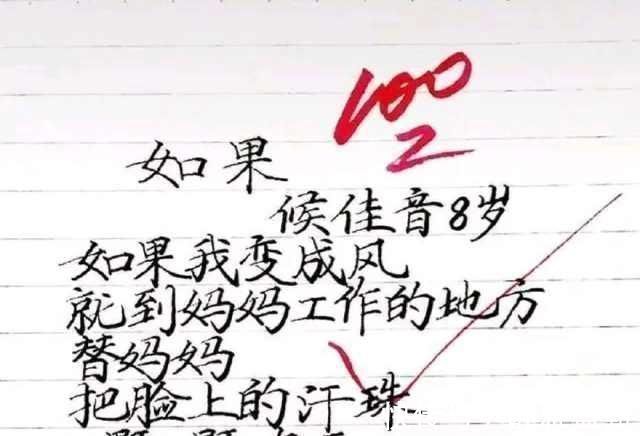 100
如果
候佳音8岁
如果我变成风
就到妈妈工作的地方
替妈妈
把脸上的汗珠